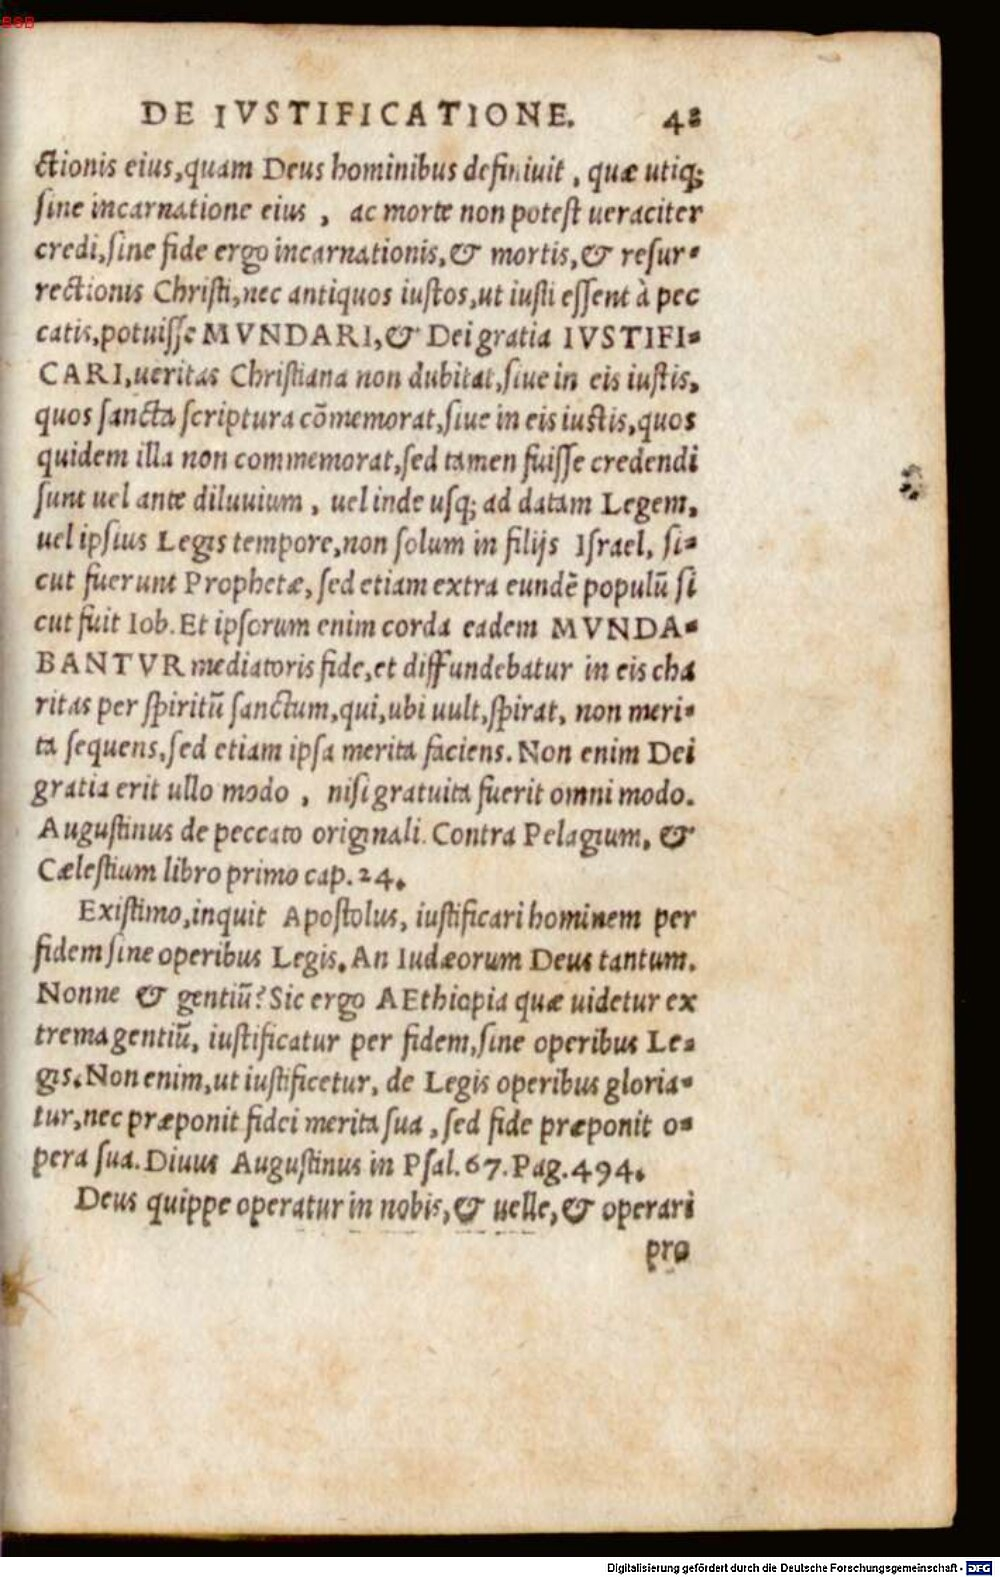 BSB
DE IVSTIFICATIONE. 42
ctionis eius, quam Deus hominibus definiuit, quæ utiq;
sine incarnatione eius, ac morte non potest ueraciter
credi, sine fide ergo incarnationis, & mortis, & resur-
rectionis Christi, nec antiquos iustos, ut iusti essent à pec
catis, potuisse MVNDARI, & Dei gratia IVSTIFI-
CARI, ueritas Christiana non dubitat, siue in eis iustis,
quos sancta scriptura cõmemorat, siue in eis iustis, quos
quidem illa non commemorat, sed tamen fuisse credendi
sunt uel ante diluuium, uel inde usq; ad datam Legem,
uel ipsius Legis tempore, non solum in filijs Israel, si-
cut fuerunt Prophetæ, sed etiam extra eundẽ populũ si
cut fuit Iob. Et ipsorum enim corda eadem MVNDA-
BANTVR mediatoris fide, et diffundebatur in eis cha
ritas per spiritũ sanctum, qui, ubi uult, spirat, non meri-
ta sequens, sed etiam ipsa merita faciens. Non enim Dei
gratia erit ullo modo, nisi gratuita fuerit omni modo.
Augustinus de peccato originali. Contra Pelagium, &
Cælestium libro primo cap. 24.
Existimo, inquit Apostolus, iustificari hominem per
fidem sine operibus Legis. An Iudæorum Deus tantum.
Nonne & gentiũ? Sic ergo AEthiopia quæ uidetur ex
trema gentiũ, iustificatur per fidem, sine operibus Le-
gis. Non enim, ut iustificetur, de Legis operibus gloria-
tur, nec præponit fidei merita sua, sed fide præponit o-
pera sua. Diuus Augustinus in Psal. 67. Pag. 494.
Deus quippe operatur in nobis, & uelle, & operari
pro
Digitalisierung gefördert durch die Deutsche Forschungsgemeinschaft - DFG